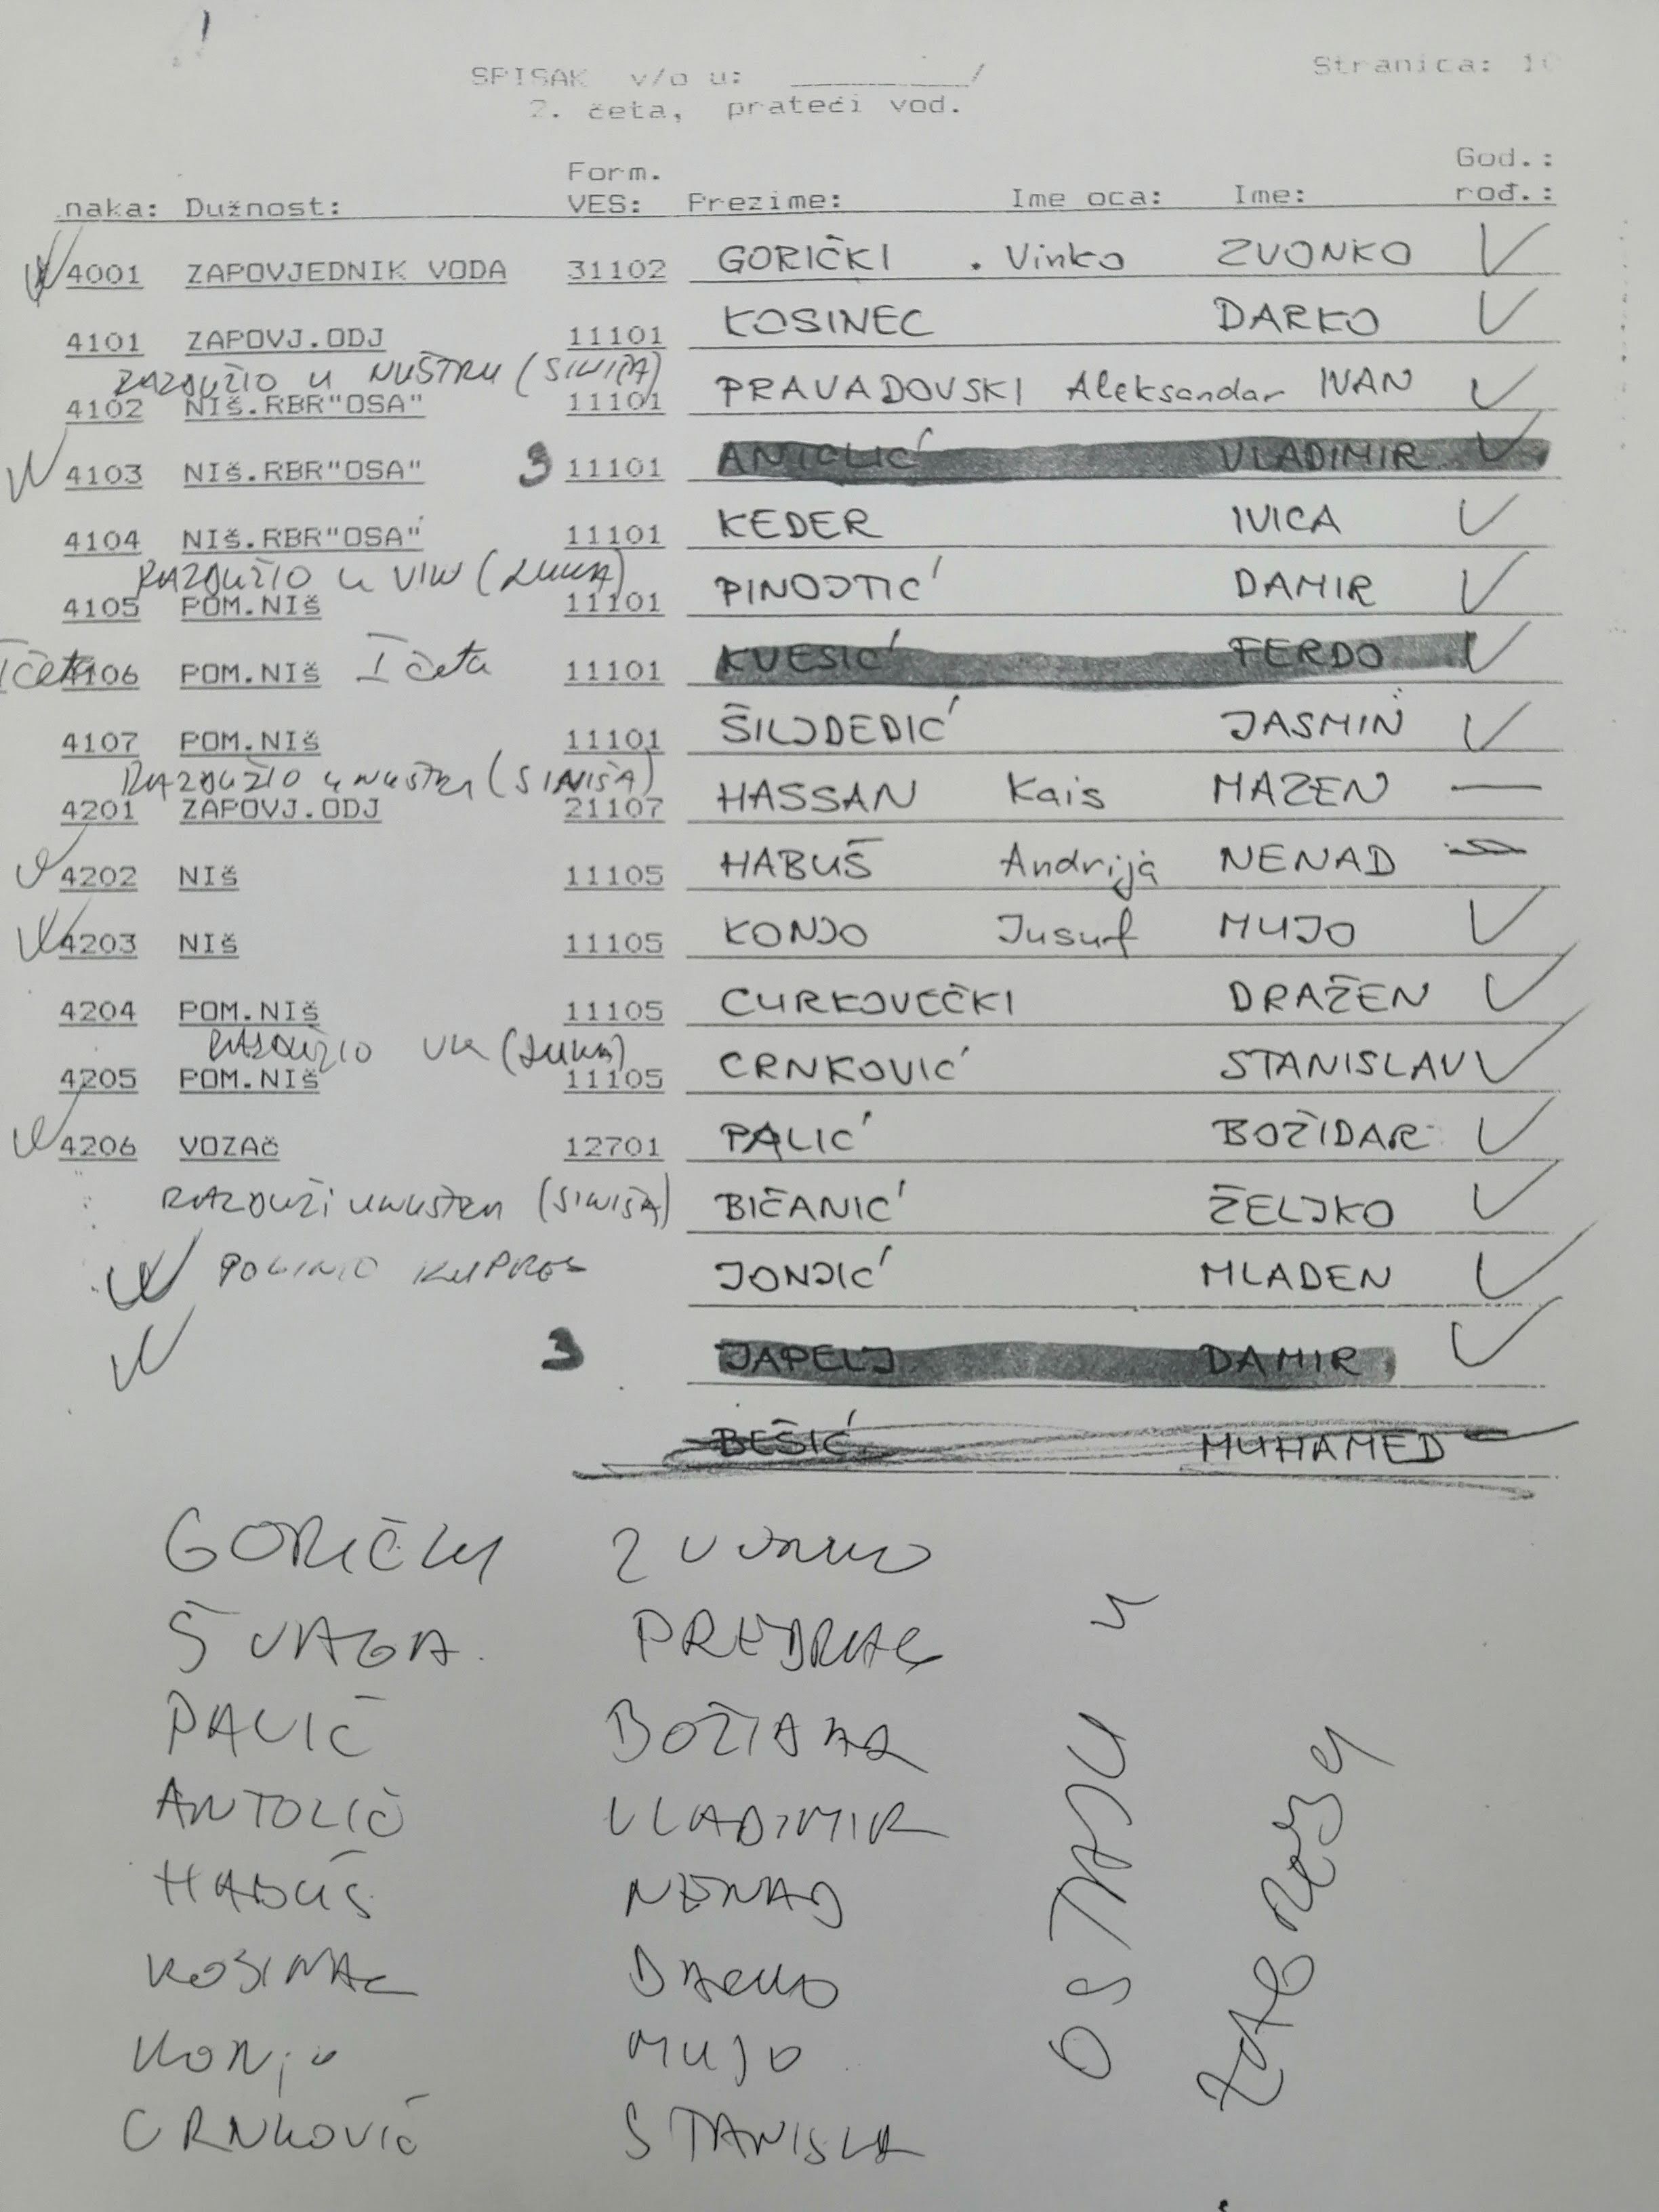 SPISAK v/o u: __________/ Stranica: 10
2. četa, prateći vod.
Form. God.:
naka: Dužnost: VES: Prezime: Ime oca: Ime: rođ.:
4001 ZAPOVJEDNIK VODA 31102 GORIČKI Vinko ZVONKO
4101 ZAPOVJ.ODJ 11101 KOSINEC DARKO
RAZDUŽIO U NUŠTRU (SINIŠA)
4102 NIš.RBR"OSA" 11101 PRAVADOVSKI Aleksandar IVAN
4103 NIš.RBR"OSA" 3 11101 ANTOLIĆ VLADIMIR
4104 NIš.RBR"OSA" 11101 KEDER IVICA
RAZDUŽIO U (LUKA)
4105 POM.NIš 11101 PINOJTIĆ DAMIR
I četa 4106 POM.NIš I četa 11101 KVESIĆ FERDO
4107 POM.NIš 11101 ŠILJDEDIĆ JASMIN
RAZDUŽIO U NUŠTRU (SINIŠA)
4201 ZAPOVJ.ODJ 21107 HASSAN Kais MAZEN —
4202 NIš 11105 HABUŠ Andrija NENAD
4203 NIš 11105 KONJO Jusuf MUJO
4204 POM.NIš 11105 CURKOVEČKI DRAŽEN
RAZDUŽIO VK (LUKA)
4205 POM.NIš 11105 CRNKOVIĆ STANISLAV
4206 VOZAč 12701 PALIĆ BOŽIDAR
RAZDUŽI U NUŠTRU (SINIŠA) BIČANIĆ ŽELJKO
POGINIO KUPRES JONJIĆ MLADEN
3 JAPELJ DAMIR
BEŠIĆ MUHAMED
GORIČKI ZVONKO
ŠVAGA PREDRAG
PALIĆ BOŽIDAR
ANTOLIĆ VLADIMIR
HABUŠ NENAD
KOSINAC DARKO
KONJO MUJO
CRNKOVIĆ STANISLA
OSTAJU U
ZAGREBU